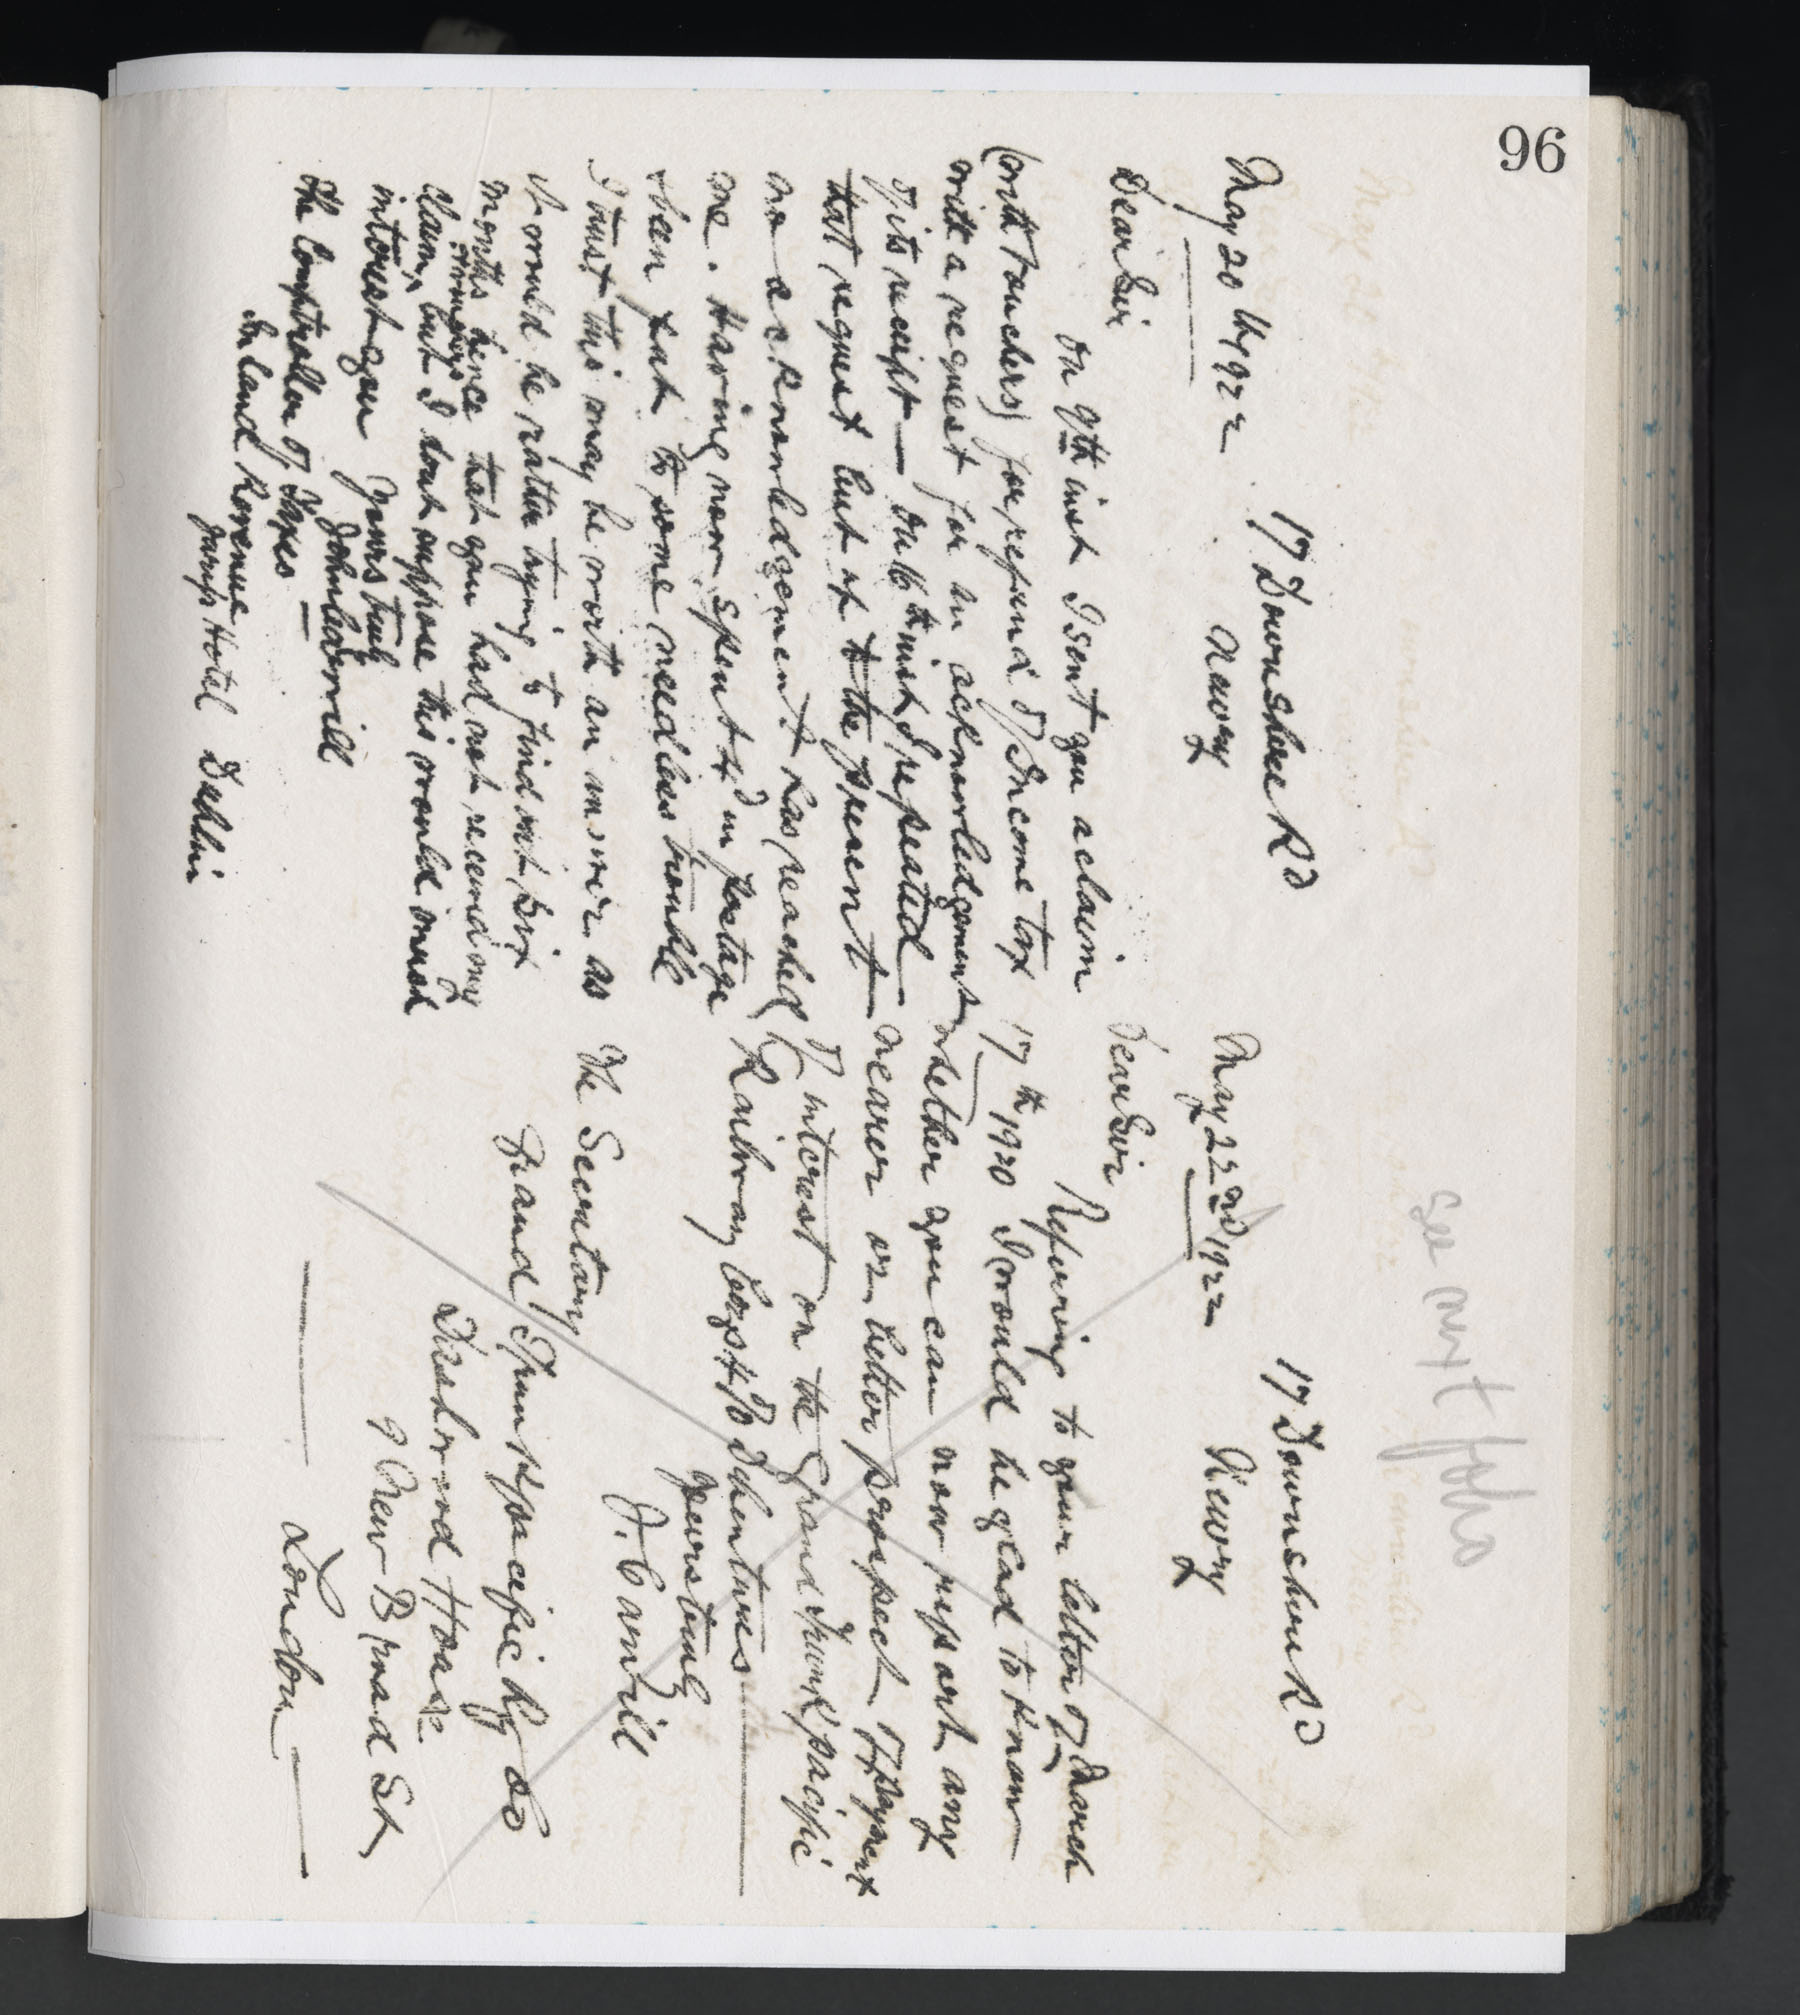 96
17 Downshire Rd
Newry
May 20th 1922
Dear Sir
On 9th inst I sent you a claim
(with vouchers) for refund of Income tax
with a request for an acknowledgement
of its receipt — on 16th inst I repeated
that request but up to the present
no acknowledgement has reached
me. Having now spent 4d in postage
& been put to some needless trouble
I trust this may be worth an answer as
it would be rather trying to find out six
months hence that you had not received my
vouchers
claim, but I dont suppose this would much
interest you Yours truly
John Carvill
The Comptroller of Taxes
Inland Revenue
Jurys Hotel Dublin
See next folio
17 Downshire Rd
Newry
May 22nd 1922
Dear Sir
Referring to your letter of March
17th 1920 I would be glad to know
whether you can now report any
nearer or better prospect of payment
of interest on the Grand Trunk Pacific
Railway Coys 4% Debentures
Yours truly
J. Carvill
The Secretary
Grand Trunk Pacific Ry Co
Dashwood House
9 New Broad St
London